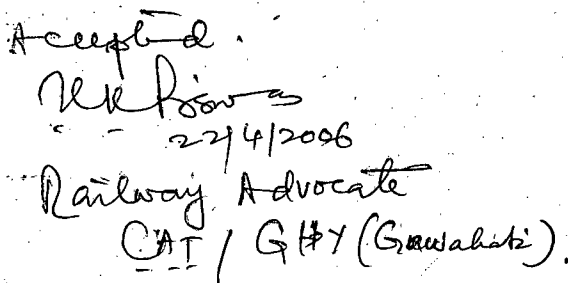 Accepted.
KK Biswas
22/4/2006
Railway Advocate
CAT / GHY (Guwahati).